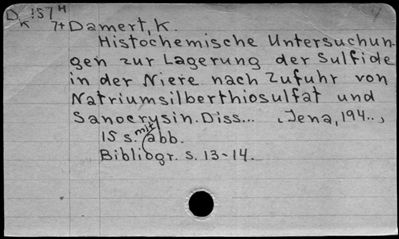 D 157 H
K 7+ Damert, K.
Histochemische Untersuchun-
gen zur Lagerung der Sulfide
in der Niere nach Zufuhr von
Natriumsilberthiosulfat und
Sanocrysin. Diss... (Jena, 194..,
15 s. mit abb.
Bibliogr. s. 13-14.